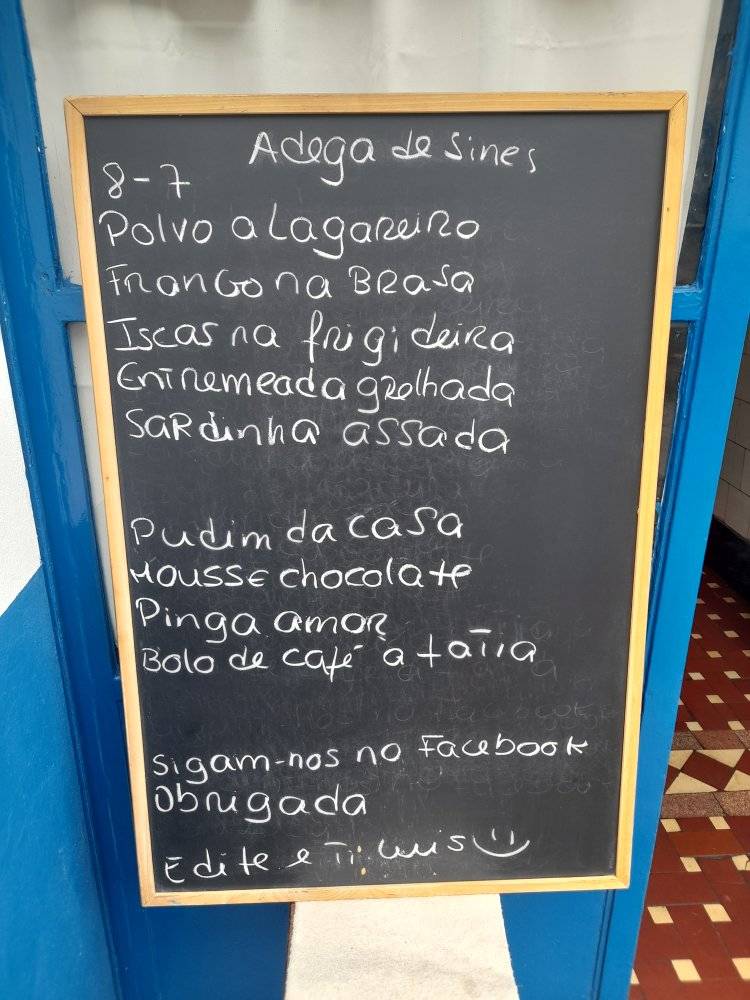 Adega de Sines
8-7
Polvo a Lagareiro
Frango na BRasa
Iscas na frigideira
Entremeada grelhada
Sardinha assada
Pudim da casa
Mousse chocolate
Pinga amor
Bolo de café a fatia
Sigam-nos no Facebook
Obrigada
Edite e Ti Luis